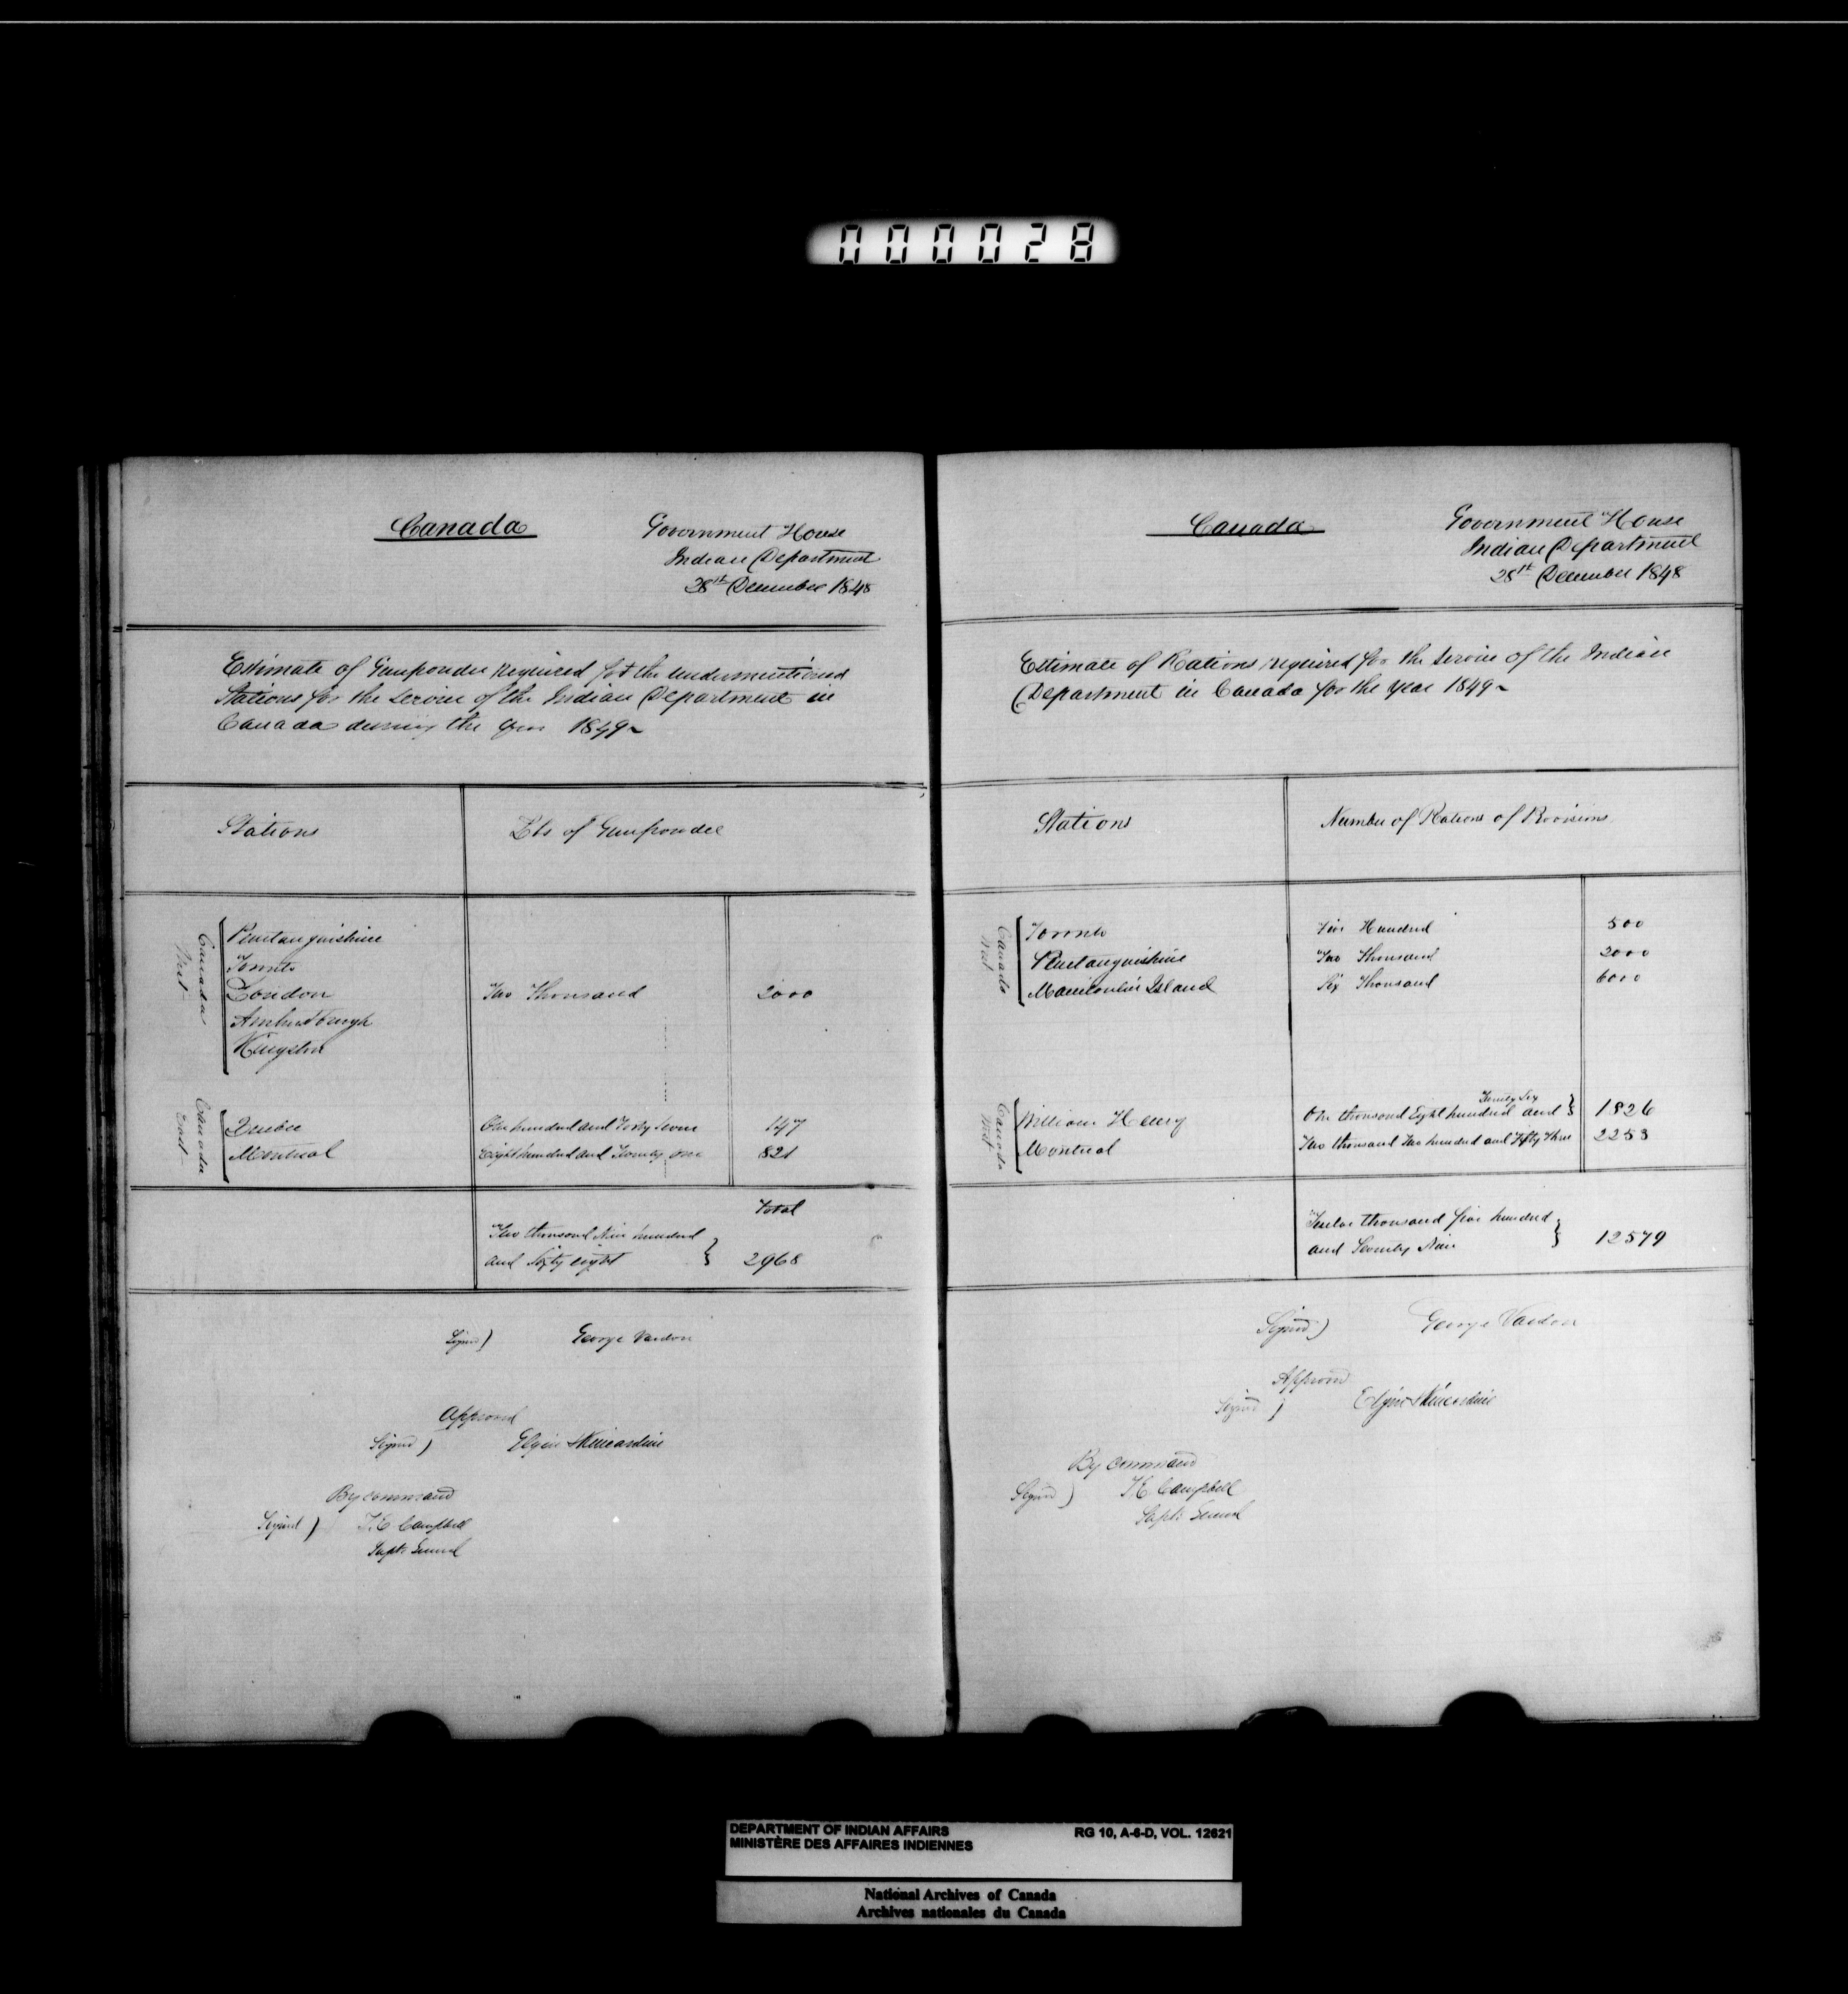 000028
Canada
Government House
Indian Department
28th December 1848
Estimate of Gunpowder required for the undermentioned
Stations for the service of the Indian Department in
Canada during the year 1849~
Stations
Lbs of Gunpowder
Canada
West
Penetanguishine
Toronto
London
Two Thousand
2000
Amherstburgh
Kingston
Canada
East
Quebec
One hundred and Forty Seven
147
Montreal
Eight hundred and Twenty one
821
Total
Two thousand Nine hundred
and Sixty eight
2968
Signed)
George Vardon
Approved
Signed)
Elgin & Kincardine
By command
Signed)
T.E Campbell
Supt. General
Canada
Government House
Indian Department
28th December 1848
Estimate of Rations required for the service of the Indian
Department in Canada for the year 1849~
Stations
Number of Rations of Provisions
Canada
West
Toronto
Five Hundred
500
Penetanguishine
Two Thousand
2000
Manitoulin Island
Six Thousand
6000
Canada
William Henry
One thousand Eight hundred and Twenty Six
1826
Montreal
Two thousand Two hundred and Fifty Three
2253
Twelve thousand five hundred
and Seventy Nine
12579
Signed)
George Vardon
Approved
Signed)
Elgin & Kincardine
By command
Signed)
T.E. Campbell
Supt. General
DEPARTMENT OF INDIAN AFFAIRS
RG 10, A-6-D, VOL. 12621
MINISTÈRE DES AFFAIRES INDIENNES
National Archives of Canada
Archives nationales du Canada